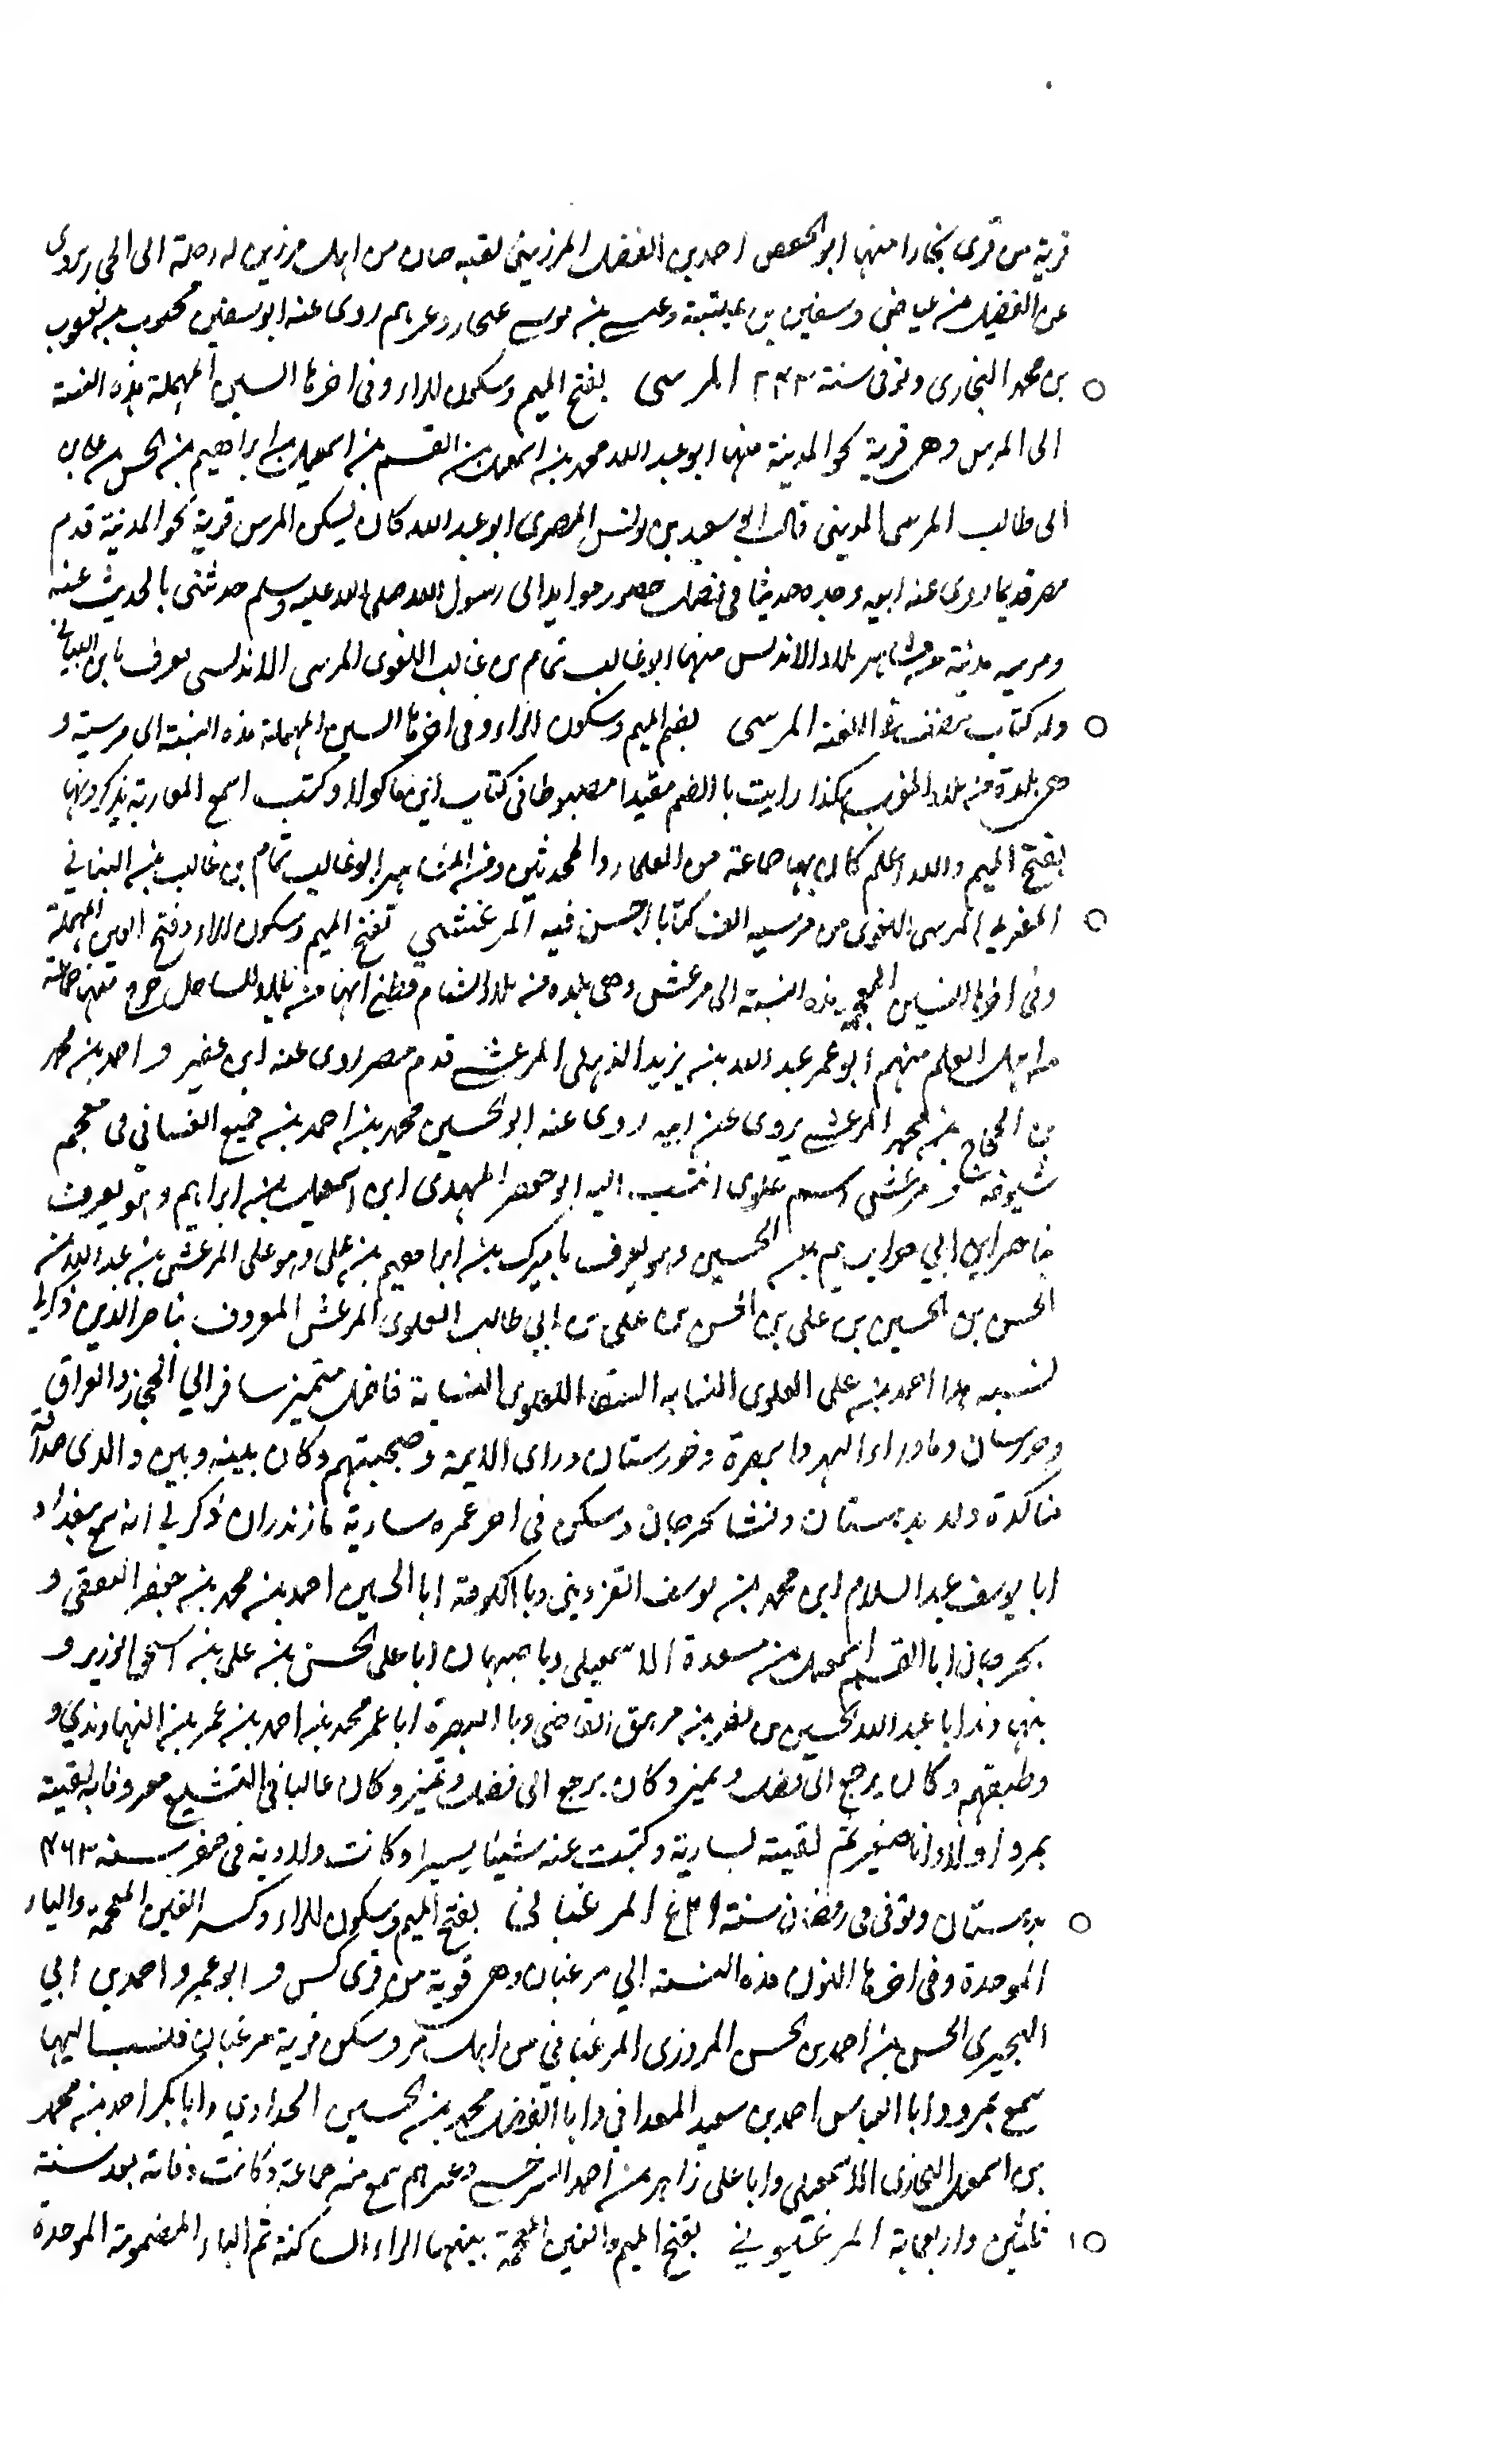 قرية من قرى بخارا منها ابو الحفص احمد بن الفضل المرزيني لقبه من اهل مرزين له رحلة الى الحج روى
عن الفضيل بنه عياض وسفين بن عيينة وعيسى بنه موسى وغيرهم روى عنه ابو سفين محبوب بنه يعقوب
بن محمد البخارى وتوفى سنة المرسى بفتح الميم وسكون الراء وفى اخرها السين المهملة هذه النسبة
الى المرس وهى قرية نحو المدينة منها ابو عبد الله محمد بنه اسمعيل بنه القسم بنه اسمعيل بن ابراهيم بنه الحسن بنه على بن
ابى طالب المرسى المدينى قال ابى سعيد بن يونس المصرى ابو عبد الله كان يسكن المرس قرية نحو المدينة قدم
مصر قديما روى عنه ابيه وجده حديثا فى فضل الى رسول الله صلى الله عليه وسلم حدثنى بالحديث عنه
ومرسيه مدينة بلاد الاندلس منها ابو غالب تمام بن غالب اللغوى المرسى الاندلسى يعرف بابن البيانى
وله كتاب مصنف فى اللغة المرسى بضم الميم وسكون الراء وفى اخرها السين المهملة هذه النسبة الى مرسية و
هى بلدة منه بلاد المغرب هكذا رايت بالضم مقيدا مضبوطا فى كتاب ابن ماكولا وكتب المغاربة يذكرونها
بفتح الميم والله اعلم كان بها جماعة من العلماء والمحدثين ومنه المشاهير ابو غالب تمام بن غالب بنه البنانى
المغربى المرسى اللغوى من مرسيه الف كتابا احسن فيه المرعشى بفتح الميم وسكون الراء وفتح العين المهملة
وفى اخرها الشين المعجمه هذه النسبة الى مرعش وهى بلده منه بلاد الشام وظنى انها منه بلاد الساحل خرج منها جماعة
منه اهل العلم منهم ابو عمر عبد الله بنه يزيد الذهلى المرعشى قدم مصر روى عنه ابن عفير و احمد بنه محمد
بن الحجاج بنه محمد المرعشى يروى عن ابيه روى عنه ابو الحسين محمد بنه احمد بنه جميع الغسانى فى معجم
شيوخه و مرعش اسم علوى انتسب اليه ابو جعفر المهدى ابن اسمعيل بنه ابراهيم وهو يعرف
بناصر ابن ابي بنه الحسين وهو يعرف باميرك بنه ابراهيم بنه على وهو على المرعشى بنه عبد الله بنه
الحسن بن الحسين بن على بن الحسن بن على بن ابي طالب العلوى المرعشى المعروف بناصر الدين ذكر لي
نسبه هذا احمد بنه على العلوى النسابه السقاء العلوى النسابة فاضل متميز سافر الي الحجاز والعراق
وخراسان وماوراء النهر والبصرة وخوزستان وراى الايمة وصحبتهم وكان بينه وبين والدى صداقة
متاكدة ولد بدهستان ونشا بجرجان وسكن فى اخر عمره سارية مازندران ذكر لي انه سمع ببغداد
ابا يوسف عبد السلام ابن محمد بنه يوسف القزوينى وبالكوفة ابا الحسين احمد بنه محمد بنه جعفر الثقفى و
بجرجان ابا القسم اسمعيل بنه مسعدة الاسمعيلى وباصبهان ابا على الحسن بنه على بنه اسحق الوزير و
بنهاوند ابا عبد الله الحسين بن نصر بنه مرهق القاضى وبا البصرة ابا عمر محمد بنه احمد بنه عمر بنه النهاوندي و
وطبقتهم وكان يرجع الى فضل وتميز وكان يرجع الى فضل وتميز وكان غاليا فى التشيع معروفا به لقيته
بمرو اولا وانا صغير ثم لقيته بسارية وكتبت عنه شيئا يسيرا وكانت ولادته فى صفر سنة ۴۶۲
بدهستان وتوفى فى رمضان سنة المرغبانى بفتح الميم وسكون الراء وكسر الغين المعجمة والباء
الموحدة وفى اخرها النون هذه النسبة الي مرغبان وهى قرية من قرى كس و ابو عمرو احمد بن ابي
البحيرى الحسن بنه احمد بن الحسن المروزى المرغبانى من اهل مرو سكن قرية مرغبان فنسب اليها
سمع بمرو ابا العباس احمد بن سعيد المعدانى وابا الفضل محمد بنه الحسين الحدادي وابا بكر احمد بنه محمد
بن اسمعيل البخارى الاسمعيلى وابا على زاهر بنه احمد السرخسى وغيرهم سمع منه جماعة وكانت وفاته بعد سنة
ثلثين واربعماية المرغبونى بفتح الميم والغين المعجمة بينهما الراء الساكنة ثم الباء المضمومة الموحدة